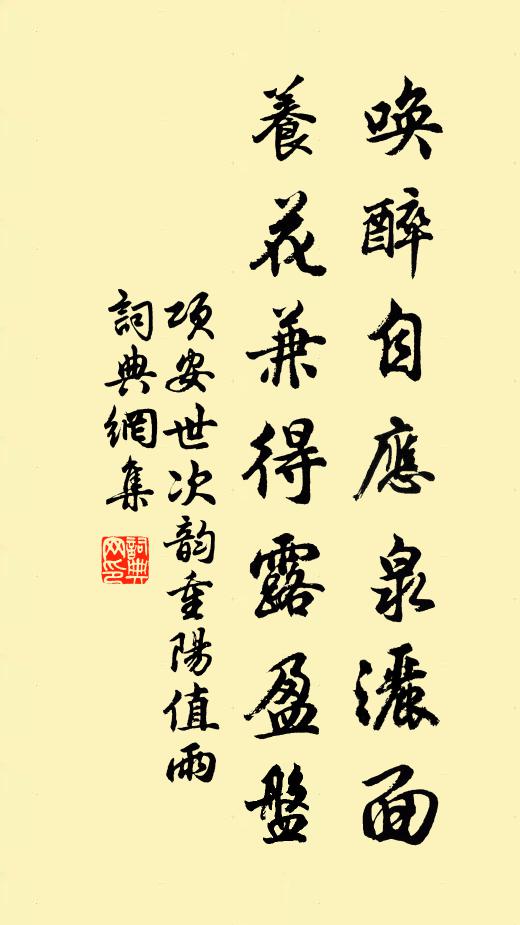 喚醉自應泉灑面
養花兼得露盈盤
項安世次韵重陽值雨
詞典網集
詞典網印